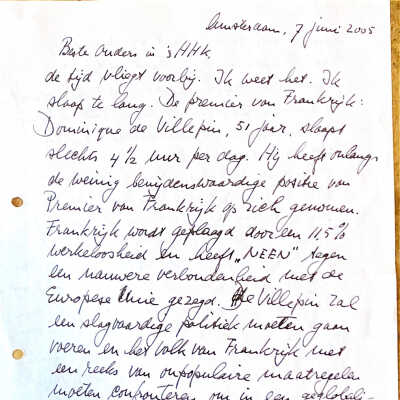 Amsterdam, 7 juni 2005
Beste Ouders in 's HHK
de tijd vliegt voorbij. Ik weet het. Ik
slaap te lang. De premier van Frankrijk:
Dominique de Villepin, 51 jaar, slaapt
slechts 4 1/2 uur per dag. Hij heeft onlangs
de weinig benijdenswaardige positie van
Premier van Frankrijk op zich genomen.
Frankrijk wordt geplaagd door een 11,5%
werkeloosheid en heeft „NEEN" tegen
een nauwere verbondenheid met de
Europese Unie gezegd. De Villepin zal
een slagvaardige politiek moeten gaan
voeren en het volk van Frankrijk met
een reeks van onpopulaire maatregelen
moeten confronteren om in een geglobali-